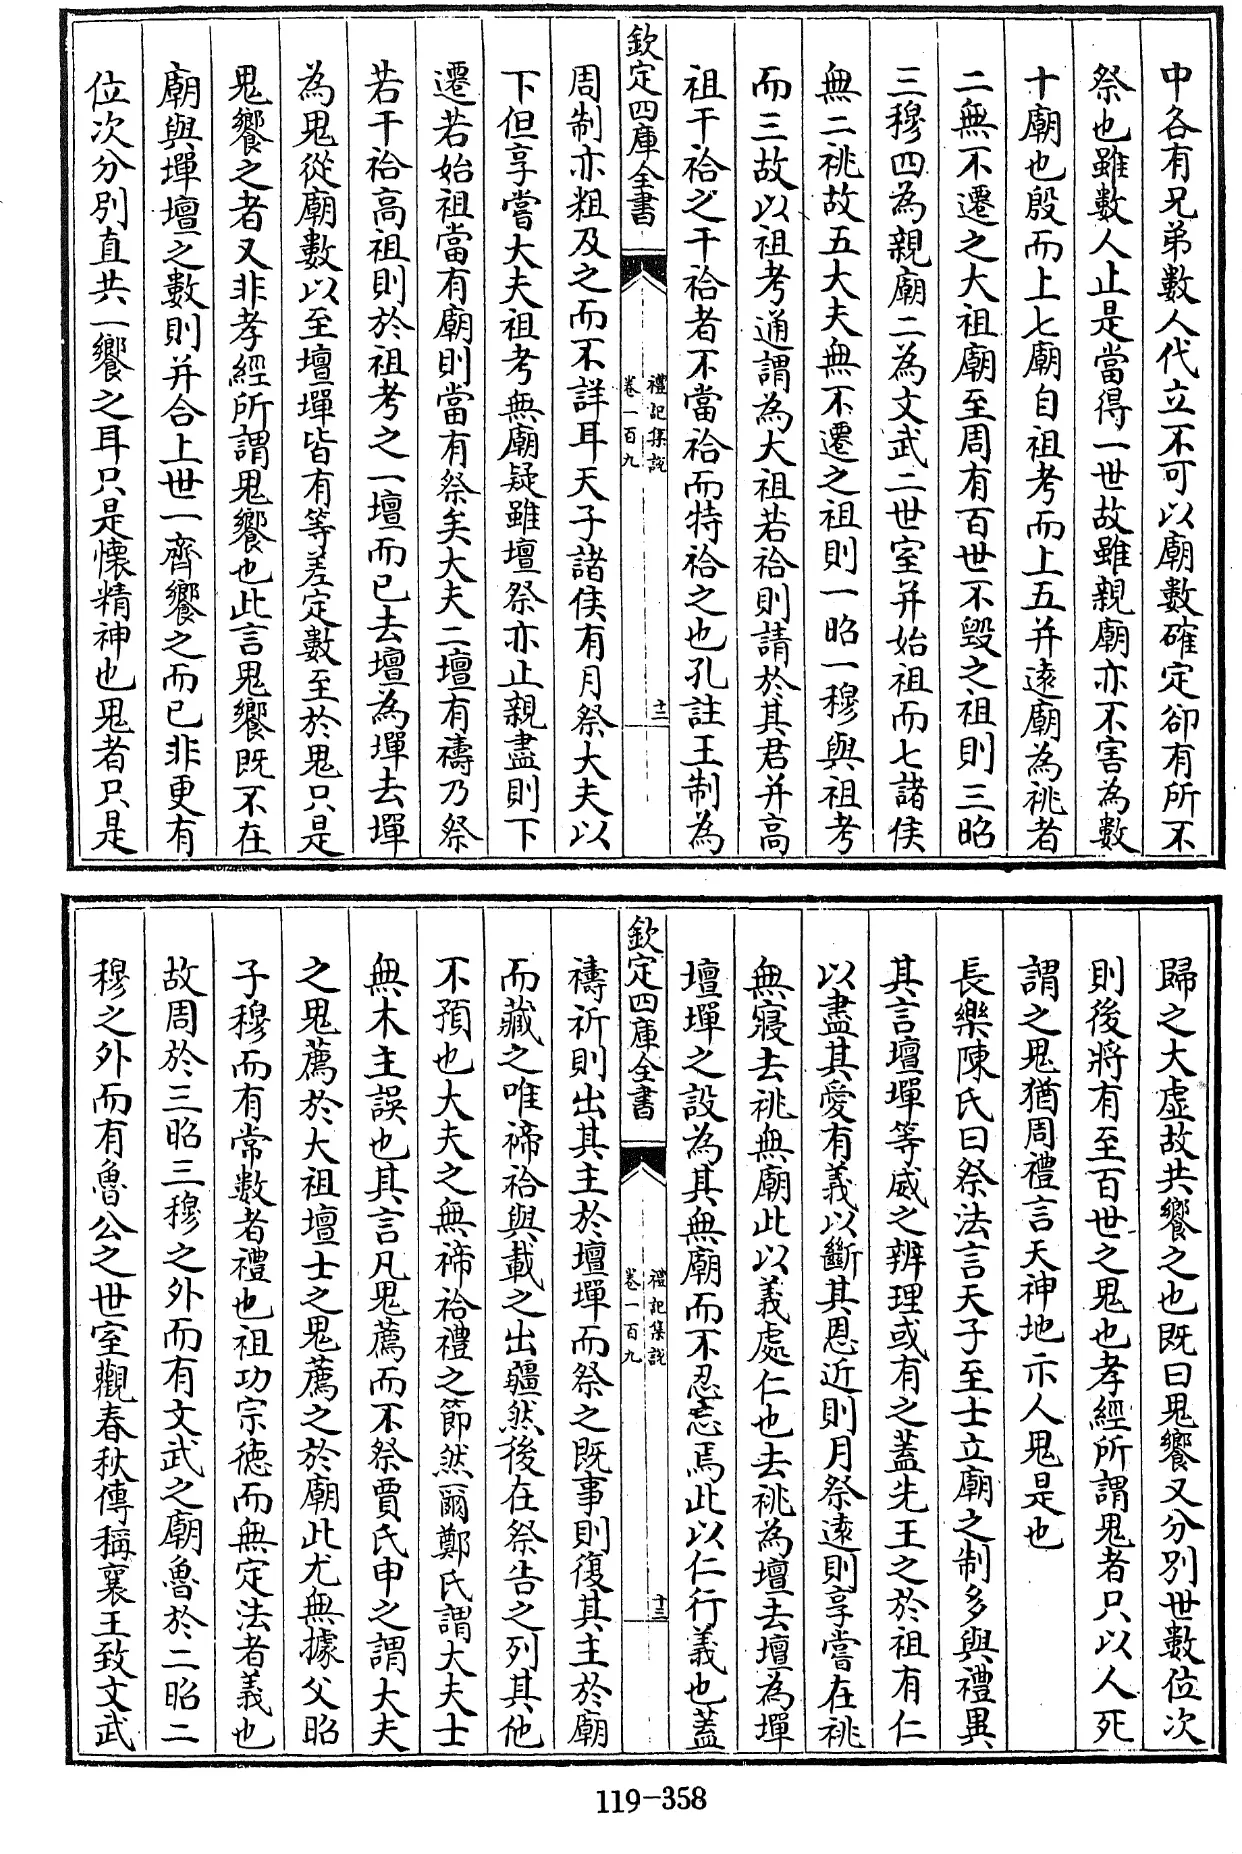 中各有兄弟數人代立不可以廟數確定卻有所不
祭也雖數人止是當得一世故雖親廟亦不害為數
十廟也殷而上七廟自祖考而上五并遠廟為祧者
二無不遷之大祖廟至周有百世不毀之祖則三昭
三穆四為親廟二為文武二世室并始祖而七諸侯
無二祧故五大夫無不遷之祖則一昭一穆與祖考
而三故以祖考通謂為大祖若祫則請於其君并高
祖干祫之干祫者不當祫而特祫之也孔註王制為
欽定四庫全書
禮記集說
卷一百九
十二
周制亦粗及之而不詳耳天子諸侯有月祭大夫以
下但享嘗大夫祖考無廟疑雖壇祭亦止親盡則下
遷若始祖當有廟則當有祭矣大夫二壇有禱乃祭
若干祫高祖則於祖考之一壇而已去壇為墠去墠
為鬼從廟數以至壇墠皆有等差定數至於鬼只是
鬼饗之者又非孝經所謂鬼饗也此言鬼饗既不在
廟與墠壇之數則并合上世一齊饗之而已非更有
位次分別直共一饗之耳只是懷精神也鬼者只是
歸之大虛故共饗之也既曰鬼饗又分別世數位次
則後將有至百世之鬼也孝經所謂鬼者只以人死
謂之鬼猶周禮言天神地示人鬼是也
長樂陳氏曰祭法言天子至士立廟之制多與禮異
其言壇墠等威之辨理或有之蓋先王之於祖有仁
以盡其愛有義以斷其恩近則月祭遠則享嘗在祧
無寢去祧無廟此以義處仁也去祧為壇去壇為墠
壇墠之設為其無廟而不忍忘焉此以仁行義也蓋
欽定四庫全書
禮記集說
卷一百九
十三
禱祈則出其主於壇墠而祭之既事則復其主於廟
而藏之唯禘祫與載之出疆然後在祭告之列其他
不預也大夫之無禘祫禮之節然爾鄭氏謂大夫士
無木主誤也其言凡鬼薦而不祭賈氏申之謂大夫
之鬼薦於大祖壇士之鬼薦之於廟此尤無據父昭
子穆而有常數者禮也祖功宗德而無定法者義也
故周於三昭三穆之外而有文武之廟魯於二昭二
穆之外而有魯公之世室觀春秋傳稱襄王致文武
119-358